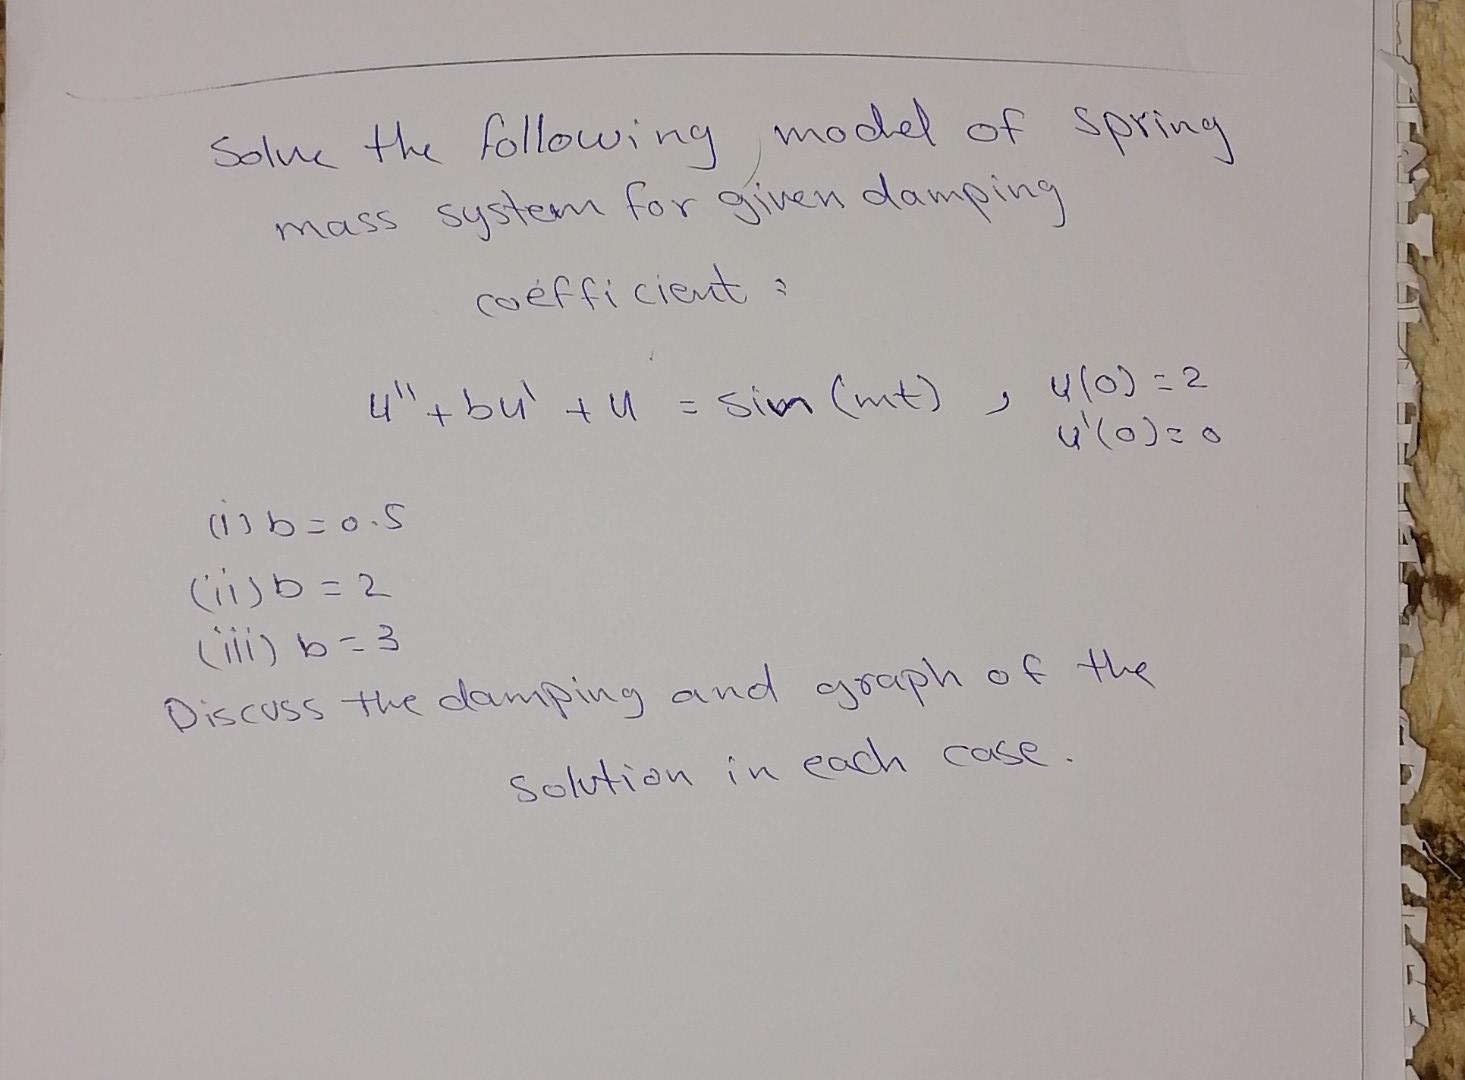 Solve the following model of spring
mass system for given damping
coefficient :
u'' + bu' + u = sin (mt) , u(0) = 2
u'(0) = 0
(i) b = 0.5
(ii) b = 2
(iii) b = 3
Discuss the damping and graph of the
solution in each case.